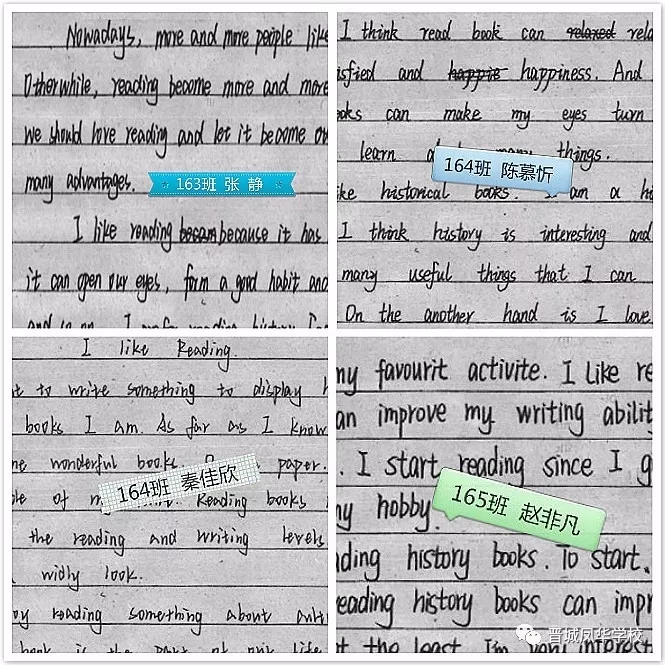 Nowadays, more and more people like
Otherwhile, reading become more and more
we should love reading and let it become ou
many advantages.
163班 张 静
I like reading becaus because it has
it can open our eyes, form a good habit and
and so on. I prefer reading history
I think read book can relaxed rela
isfied and happie happiness. And
oks can make my eyes turn
learn many things.
164班 陈慕忻
ike historical books. I am a hi
I think history is interesting and
many useful things that I can
On the another hand is I love
I like Reading.
t to write something to display h
books I am. As far as I know
ne wonderful books. paper.
164班 秦佳欣
le of Reading books
the reading and writing levels
widly look.
oy reading something about
book is the part of our life
my favourit activite. I like re
an improve my writing abilit
. I start reading since I g
my hobby.
165班 赵非凡
ading history books. To start.
reading history books can impr
t the least. I'm very interest
晋城凤华学校